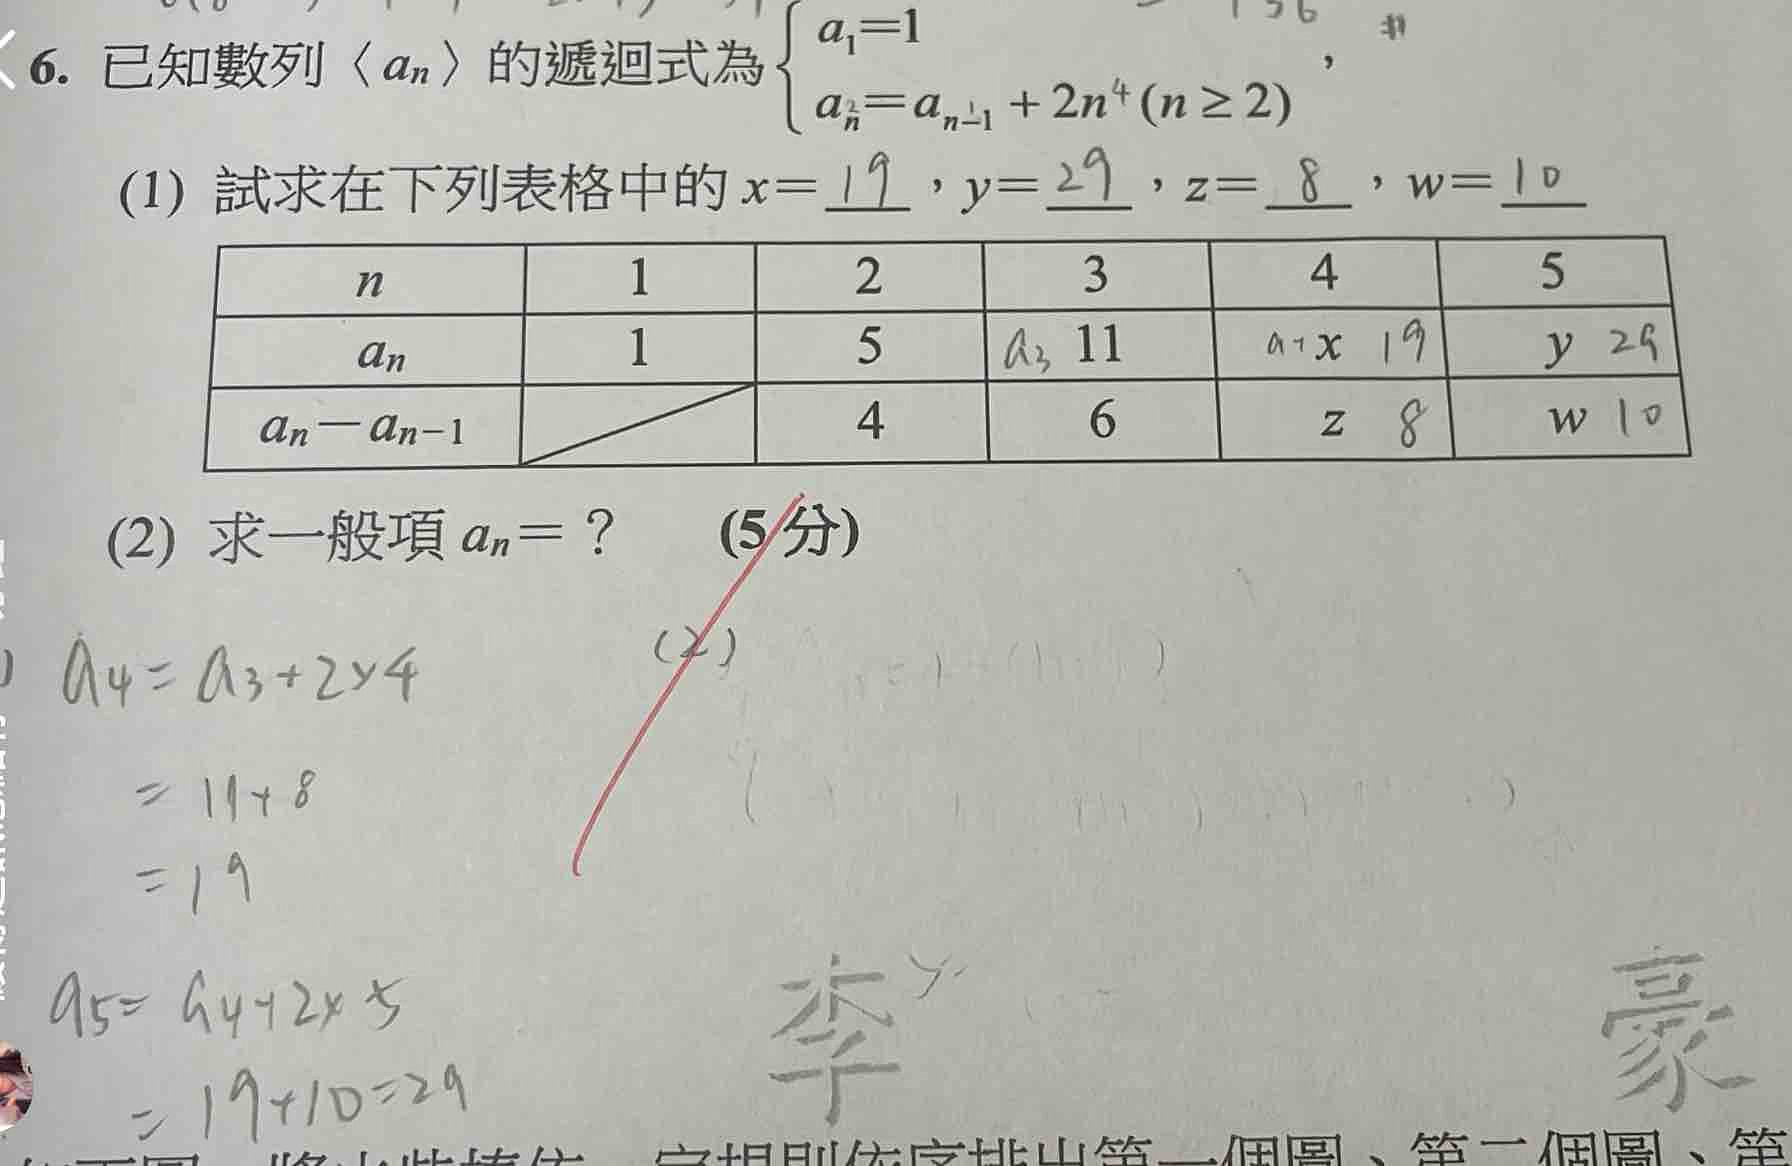 6. 已知數列〈aₙ〉的遞迴式為 { a₁=1
aₙ=aₙ₋₁+2n (n≥2) ,
(1) 試求在下列表格中的 x=19,y=29,z=8,w=10
n 1 2 3 4 5
aₙ 1 5 a₃ 11 x 19 y 29
aₙ-aₙ₋₁ 4 6 z 8 w 10
(2) 求一般項 aₙ=? (5分)
a₄=a₃+2×4
=11+8
=19
a₅=a₄+2×5
=19+10=29
(2)
李 豪